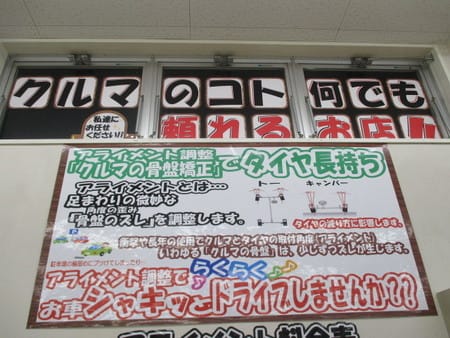 クルマのコト何でも
私達に
お任せ
ください!!
頼れるお店!!
アライメント調整
「クルマの骨盤矯正」でタイヤ長持ち
アライメントとは…
足まわりの微妙な
角度の歪み
「骨盤のズレ」を調整します。
トー
キャンバー
タイヤの減り方に影響します。
衝撃や長年の使用でクルマとタイヤの取付角度(アライメント)
いわゆる「クルマの骨盤」は、少しずつズレが生じます。
駐車場の輪留めにブツけてしまったり…
アライメント調整で
らくらく♪♪
お車シャキッとドライブしませんか??
アライメント料金表